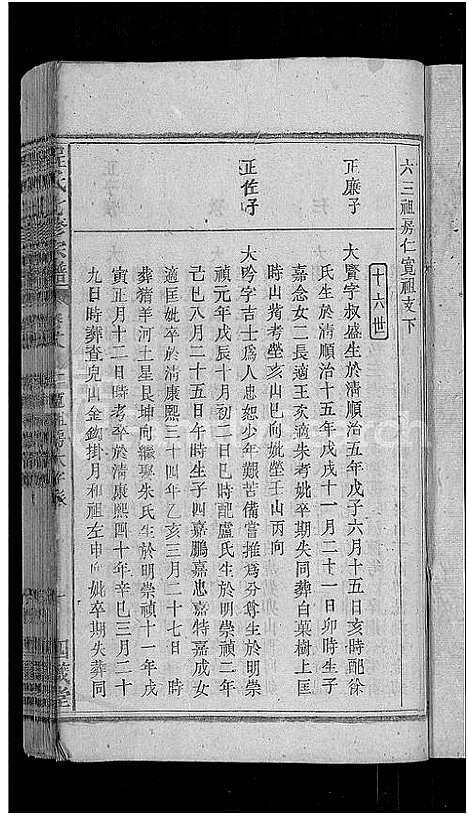 六三祖房仁寬祖支下
十六世
正廉子
大賢字叔盛生於清順治五年戊子六月十五日亥時配徐
氏生於清順治十五年戊戌十一月二十一日卯時生子
嘉念女二長適王次適朱考妣卒期失同葬白菓樹上匡
時山蔸考塋亥山巳向妣塋壬山丙向
正佐子
大吟字吉士爲人忠恕少年艱苦備嘗推爲分尊生於明崇
禎元年戊辰十月初二日巳時配盧氏生於明崇禎二年
己巳八月二十五日午時生子四嘉鵬嘉忠嘉特嘉成女
適匡妣卒於清康熙三十四年乙亥三月二十七日 時
葬猪羊河土星艮坤向繼娶朱氏生於明崇禎十一年戊
寅正月十二日時考卒於清康熙四十年辛巳三月二十
九日時葬查兜山金鈎掛月和祖左申向妣卒期失葬同
氏七修家譜